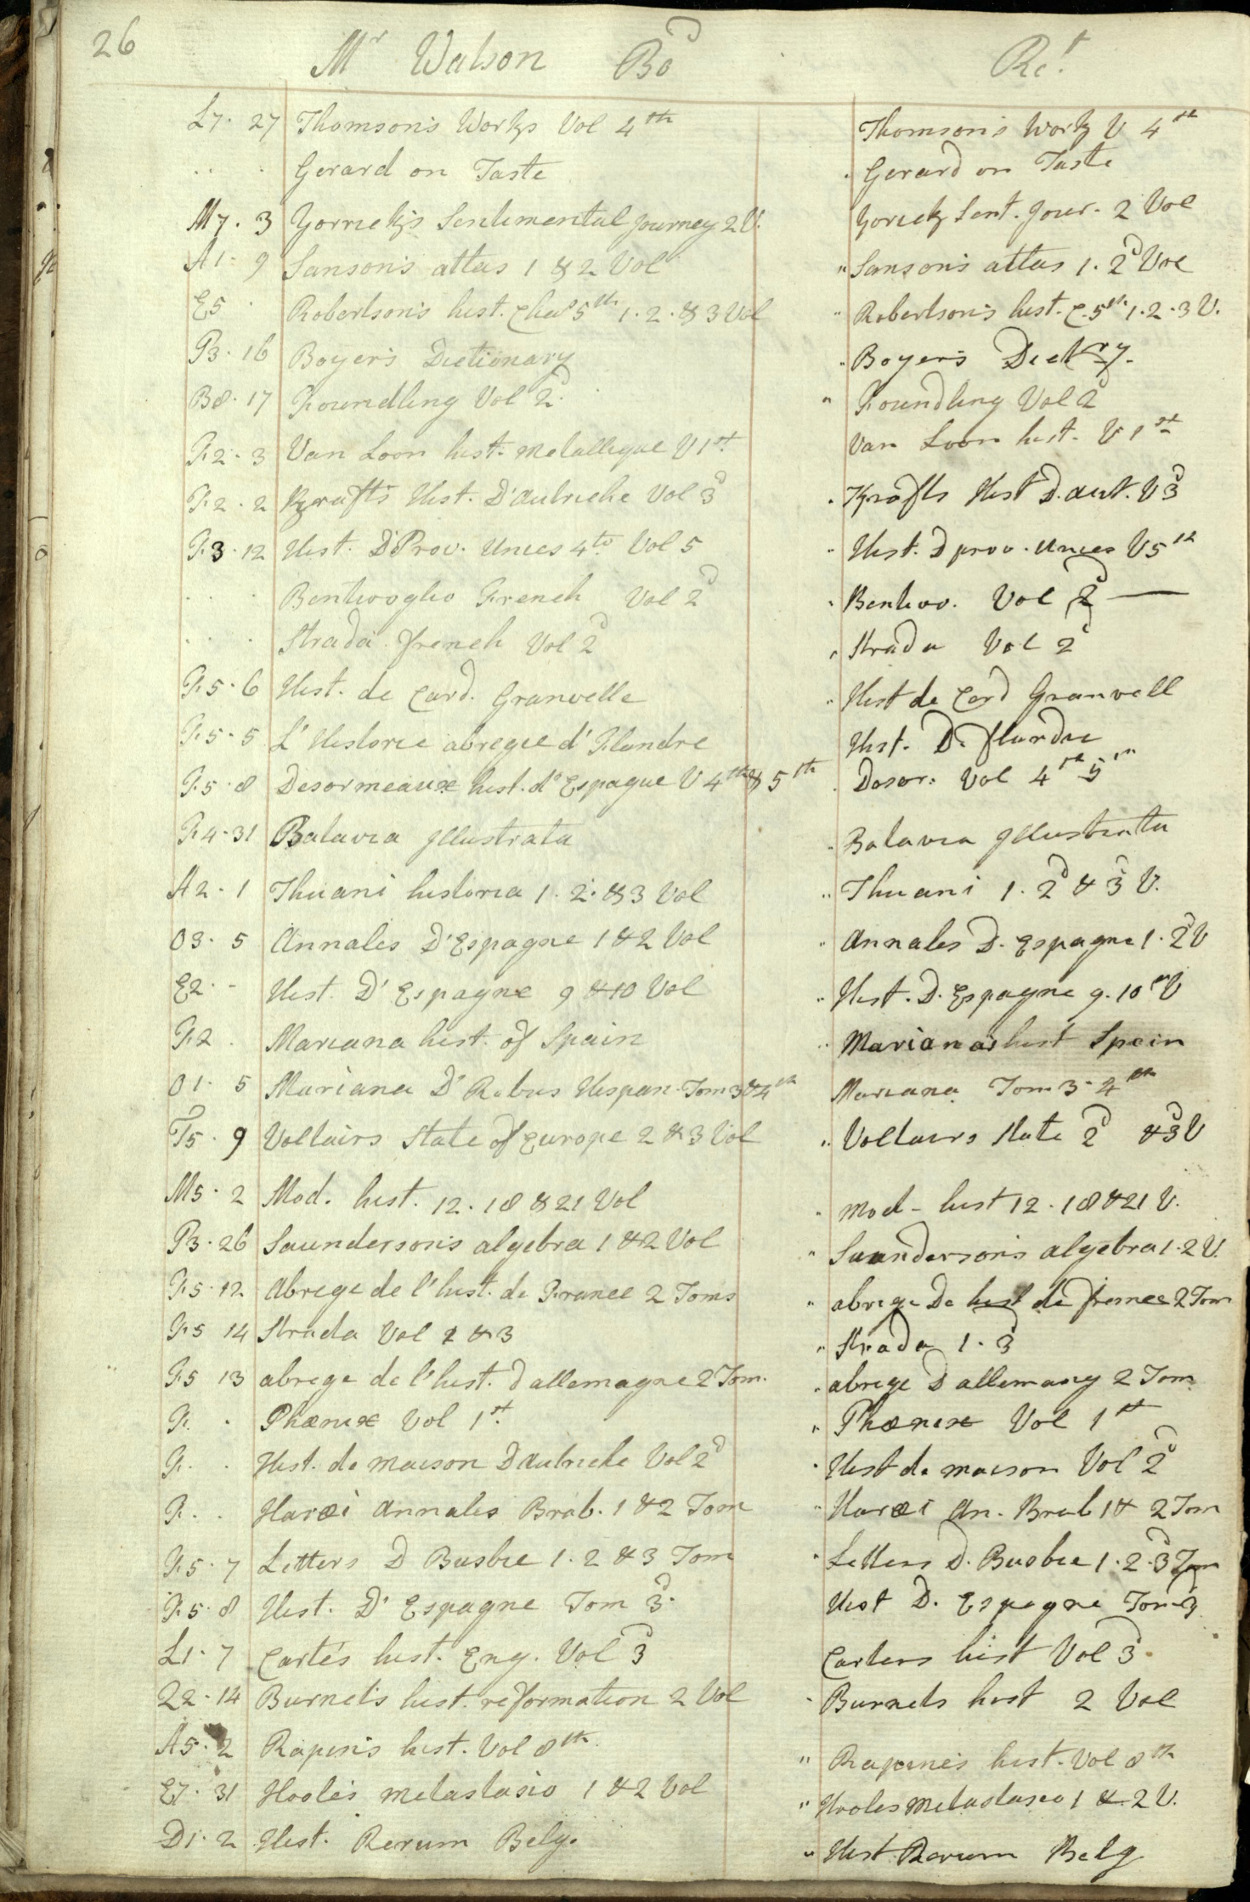 26 Mr Watson Bod Ret.
L7. 27 Thomson's Works Vol 4th Thomson's Works V 4th
Gerard on Taste Gerard on Taste
M7. 3 Yorrick's Sentimental Journey 2V. Yorick Sent. Jour. 2 Vol
A1. 9 Sanson's attas 1 & 2 Vol Sanson's attas 1. 2d Vol
E5 Robertson's hist. Chas 5th 1. 2. & 3 Vol Robertson's hist. C. 5th 1. 2. 3 V.
P3. 16 Boyer's Dictionary Boyers Dictry.
B8. 17 Foundling Vol 2d. Foundling Vol 2d
F.2. 3 Van Loon hist. metallique V 1st. Van Loon hist. V 1st
F.2. 2 Krafts Hist. D'autriche Vol 3d Krafts Hist D. aut. V 3d
F.3. 12 Hist. D'Prov. Unies 4to Vol 5 Hist. D prov. Unies V 5th
Bentivoglio French Vol 2d Bentivo. Vol 2d
Strada french Vol 2d Strada Vol 2d
F.5. 6 Hist. de Card. Granvelle Hist de Card Granvell
F.5. 5 L'Historie abregee d'Flandre Hist. D. flandre
F.5. 8 Desormeaux hist. d'Espagne V 4th & 5th Desor. Vol 4th 5th
F.4. 31 Batavia Illustrata Batavia Illustrata
A2. 1 Thuani historia 1. 2. & 3 Vol Thuani 1. 2d & 3d V.
O3. 5 Annales D'Espagne 1 & 2 Vol Annales D. Espagne 1. 2d V
E2. - Hist. D'Espagne 9 & 10 Vol Hist. D. Espagne 9. 10th V
F.2 Mariana hist. of Spain Mariana's hist Spain
O1. 5 Mariana D' Rebus Hispan. Tom 3 & 4th Mariana Tom 3. 4th
T5. 9 Voltairs State of Europe 2 & 3 Vol Voltairs State 2d & 3d V
M5. 2 Mod. hist. 12. 18 & 21 Vol Mod- hist 12. 18 & 21 V.
P3. 26 Saunderson's algebra 1 & 2 Vol Saunderson's algebra 1. 2 V.
F.5. 12 Abrege de l'hist. de France 2 Toms abrege De hist de france 2 Tom
F.5 14 Strada Vol 1 & 3 Strada 1. 3d
F.5 13 abrege de l'hist. d allemagne 2 Tom. abrege D allemany 2 Tom
F. Phœnix Vol 1st. Phœnix Vol 1st
F. Hist. de maison D'autriche Vol 2d Hist de maison Vol 2d
F. Haræi Annales Brab. 1 & 2 Tom Haræi An. Brab 1 & 2 Tom
F.5. 7 Letters D Busbec 1. 2 & 3 Tom Letters D. Busbec 1. 2. 3d Tom
F.5. 8 Hist. D' Espagne Tom 3d. Hist D. Espagne Tom 3
L1. 7 Carte's hist. Eng. Vol 3d Carters hist Vol 3d.
Q2. 14 Burnet's hist. reformation 2 Vol Burnets hist 2 Vol
A5. 2 Rapin's hist. Vol 8th. Rapine's hist. Vol 8th
E7. 31 Hooles metastasio 1 & 2 Vol Hooles Metastasio 1 & 2 V.
D1. 2 Hist. Rerum Belg. Hist Rerum Belg